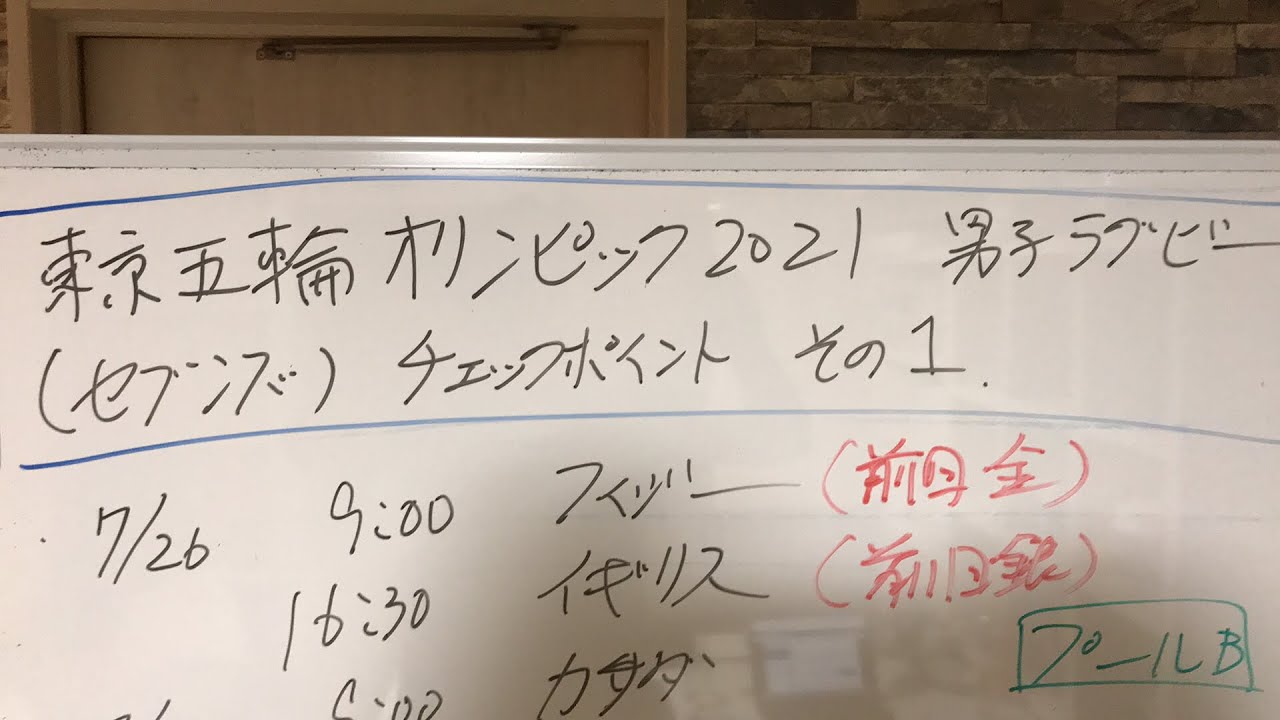 東京五輪オリンピック2021 男子ラグビー
(セブンズ) チェックポイント その1.
7/26 9:00 フィジー (前回 金)
16:30 イギリス (前回銀)
:00 カナダ
プールB